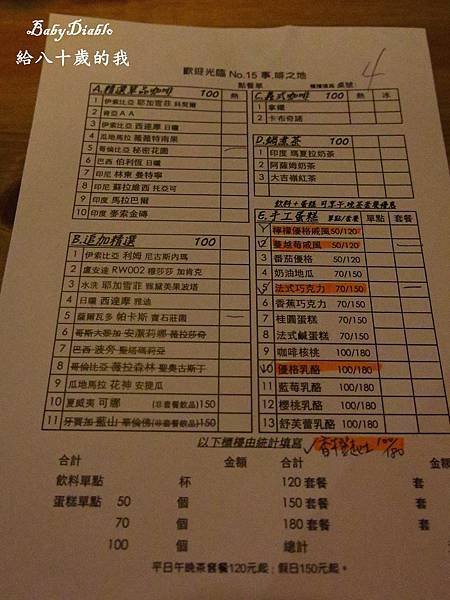 BabyDiablo
給八十歲的我
歡迎光臨 No.15 事.啡之地
點餐單
櫃檯填寫 桌號
4
A.精選單品咖啡 100 熱
1 伊索比亞 耶加雪菲 科契爾
2 肯亞AA
3 伊索比亞 西達摩 日曬
4 瓜地馬拉 薇薇特南果
5 哥倫比亞 秘密花園
6 巴西 伯利恆 日曬
7 印尼 林東 曼特寧
8 印尼 蘇拉維西 托亞可
9 印度 馬拉巴爾
10 印度 麥索金磚
B.追加精選 100 熱
1 伊索比亞 利姆 尼古斯內瑪
2 盧安達 RW002 穆莎莎 加肯克
3 水洗 耶加雪菲 雅黛美果波塔
4 日曬 西達摩 雅迪
5 薩爾瓦多 帕卡斯 寶石莊園
6 哥斯大黎加 安潔莉娜 薇拉莎奇
7 巴西 波旁 聖塔瑪莉亞
8 哥倫比亞 薇拉森林 聖奧古斯丁
9 瓜地馬拉 花神 安提瓜
10 夏威夷 可娜 (非套餐飲品)150
11 牙買加 藍山 華倫佛(非套餐飲品)150
C.義式咖啡 100 熱 冰
1 拿鐵
2 卡布奇諾
D.鍋煮茶 100
1 印度 瑪夏拉奶茶
2 阿薩姆奶茶
3 大吉嶺紅茶
飲料+蛋糕 可享下.晚茶套餐優惠
E.手工蛋糕 單點/套餐 單點 套餐
1 檸檬優格戚風 50/120
2 蔓越莓戚風 50/120
3 番茄優格 50/120
4 奶油地瓜 70/150
5 法式巧克力 70/150
6 香蕉巧克力 70/150
7 桂圓蛋糕 70/150
8 法式鹹蛋糕 70/150
9 咖啡核桃 100/180
10 優格乳酪 100/180
11 藍莓乳酪 100/180
12 櫻桃乳酪 100/180
13 舒芙蕾乳酪 100/180
以下櫃檯由統計填寫
100/180
合計 金額 合計 金額
飲料單點 杯 120套餐 套
蛋糕單點 50 個 150套餐 套
70 個 180套餐 套
100 個 總計
平日午晚茶套餐120元起；假日150元起。